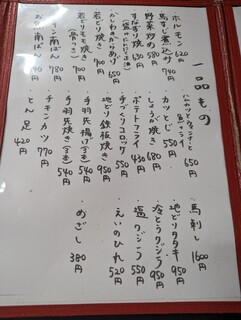 一品もの
ホルモン 620円
馬すじ煮込み 740円
野菜炒め 580円
すなずり焼き 630円
むしゅうからあげ 650円
若どり焼き 700円
若どりモモ焼き(骨つき) 700円
チキン南ばん 780円
ハムカツとウィンナーと魚フライ 650円
カツとじ 550円
しょうが焼き 680円
ポテトフライ 430円
手づくりコロッケ 550円
地どり鉄板焼き 950円
手羽先揚げ(3本) 540円
手羽先焼き(3本) 540円
チキンカツ 770円
とん足 420円
馬刺し 1600円
地どりタタキ 950円
冷とうクジラ 950円
塩クジラ 550円
えいのひれ 520円
めざし 380円